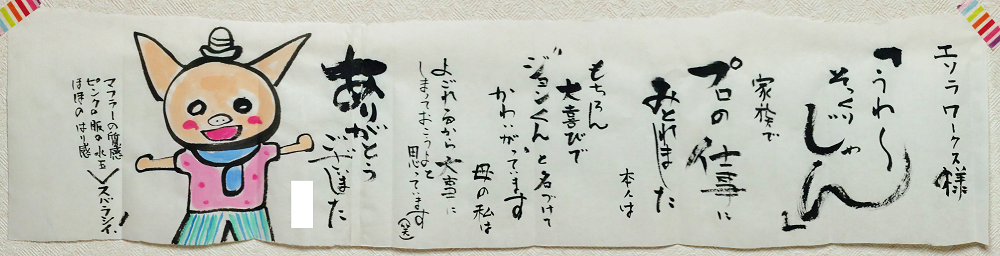 エソラワークス様
「うわ〜
そっくりじゃん」
家族で
プロの仕事に
みとれました
本人は
もちろん
大喜びで
"ジョンくん"と名づけて
かわいがっています
母の私は
よごれるから大事に
しまっておこうよと
思っています(笑)
ありがとう
ございました
マフラーの質感
ピンクの服の水玉
ほほのはり感
スバラシイ!